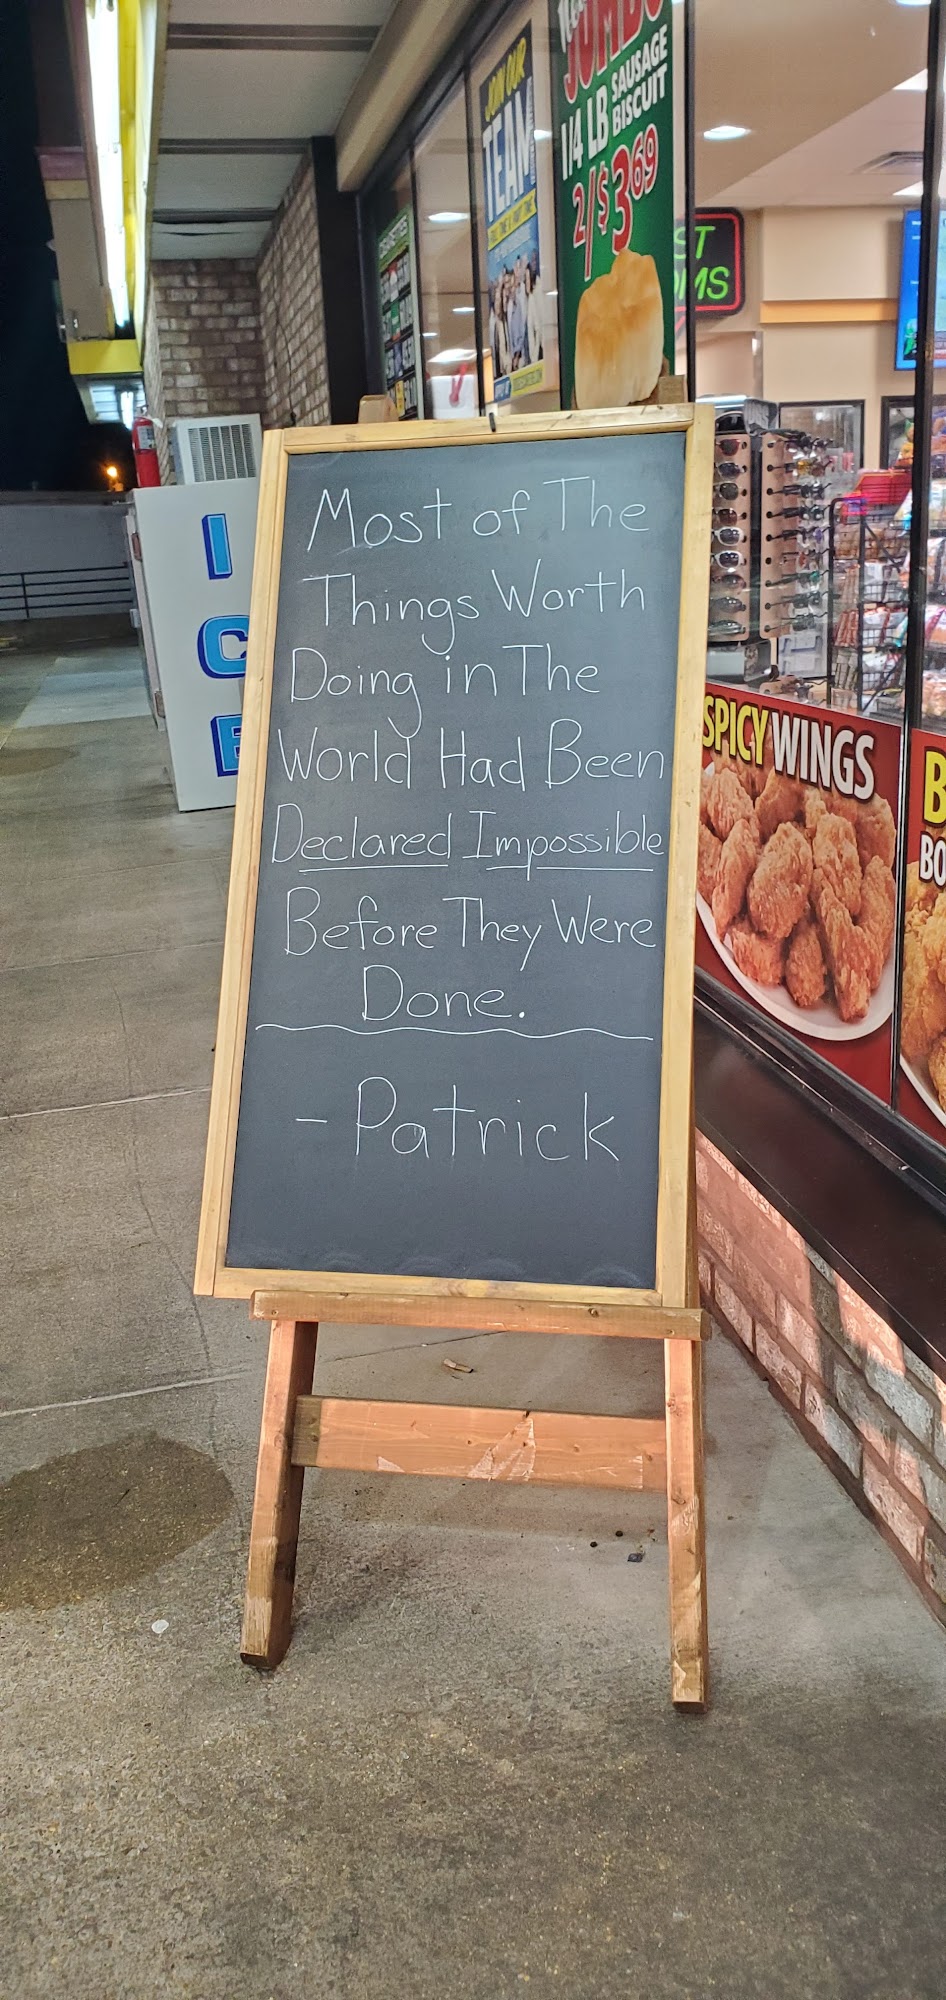 Most of The
Things Worth
Doing in The
World Had Been
Declared Impossible
Before They Were
Done.
- Patrick
JUMBO
1/4 LB SAUSAGE
BISCUIT
2/$369
JOIN OUR
TEAM
ICE
SPICY WINGS